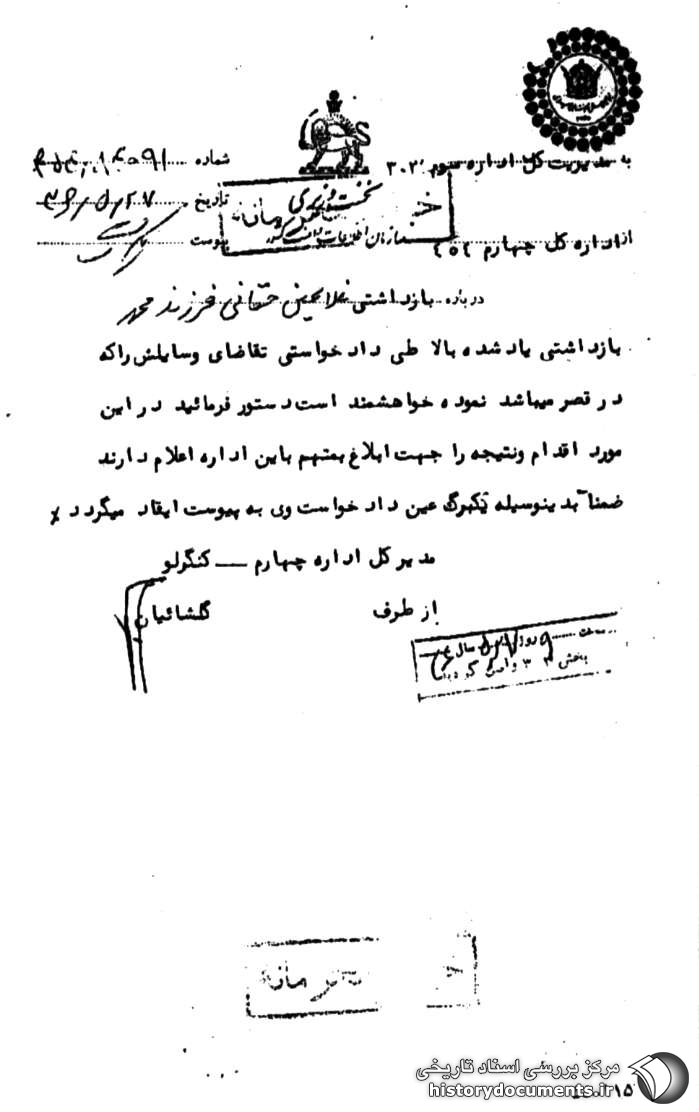 به مدیریت کل اداره سوم ۳۰۲
شماره
نخست وزیری
خیلی محرمانه
سازمان اطلاعات و امنیت کشور
تاریخ
از اداره کل چهارم
پیوست
درباره بازداشتی غلامحسین حقانی فرزند محمد
بازداشتی یاد شده بالا طی دادخواستی تقاضای وسایلش راکه
در قصر میباشد نموده خواهشمند است دستور فرمائید در این
مورد اقدام ونتیجه را جهت ابلاغ بمتهم باین اداره اعلام دارند
ضمناً بدینوسیله یکبرگ عین دادخواست وی به پیوست ایفاد میگردد
مدیرکل اداره چهارم ـ کنگرلو
از طرف گلشائیان
ساعت روز سال
بخش ۳۰۲ وارد گردید
خیلی محرمانه
مرکز بررسی اسناد تاریخی
historydocuments.ir